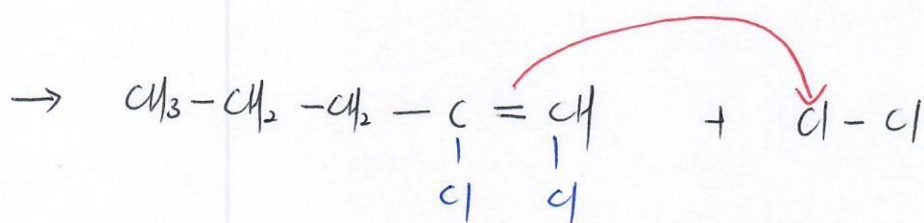 → CH3-CH2-CH2-C=CH + Cl-Cl
Cl Cl